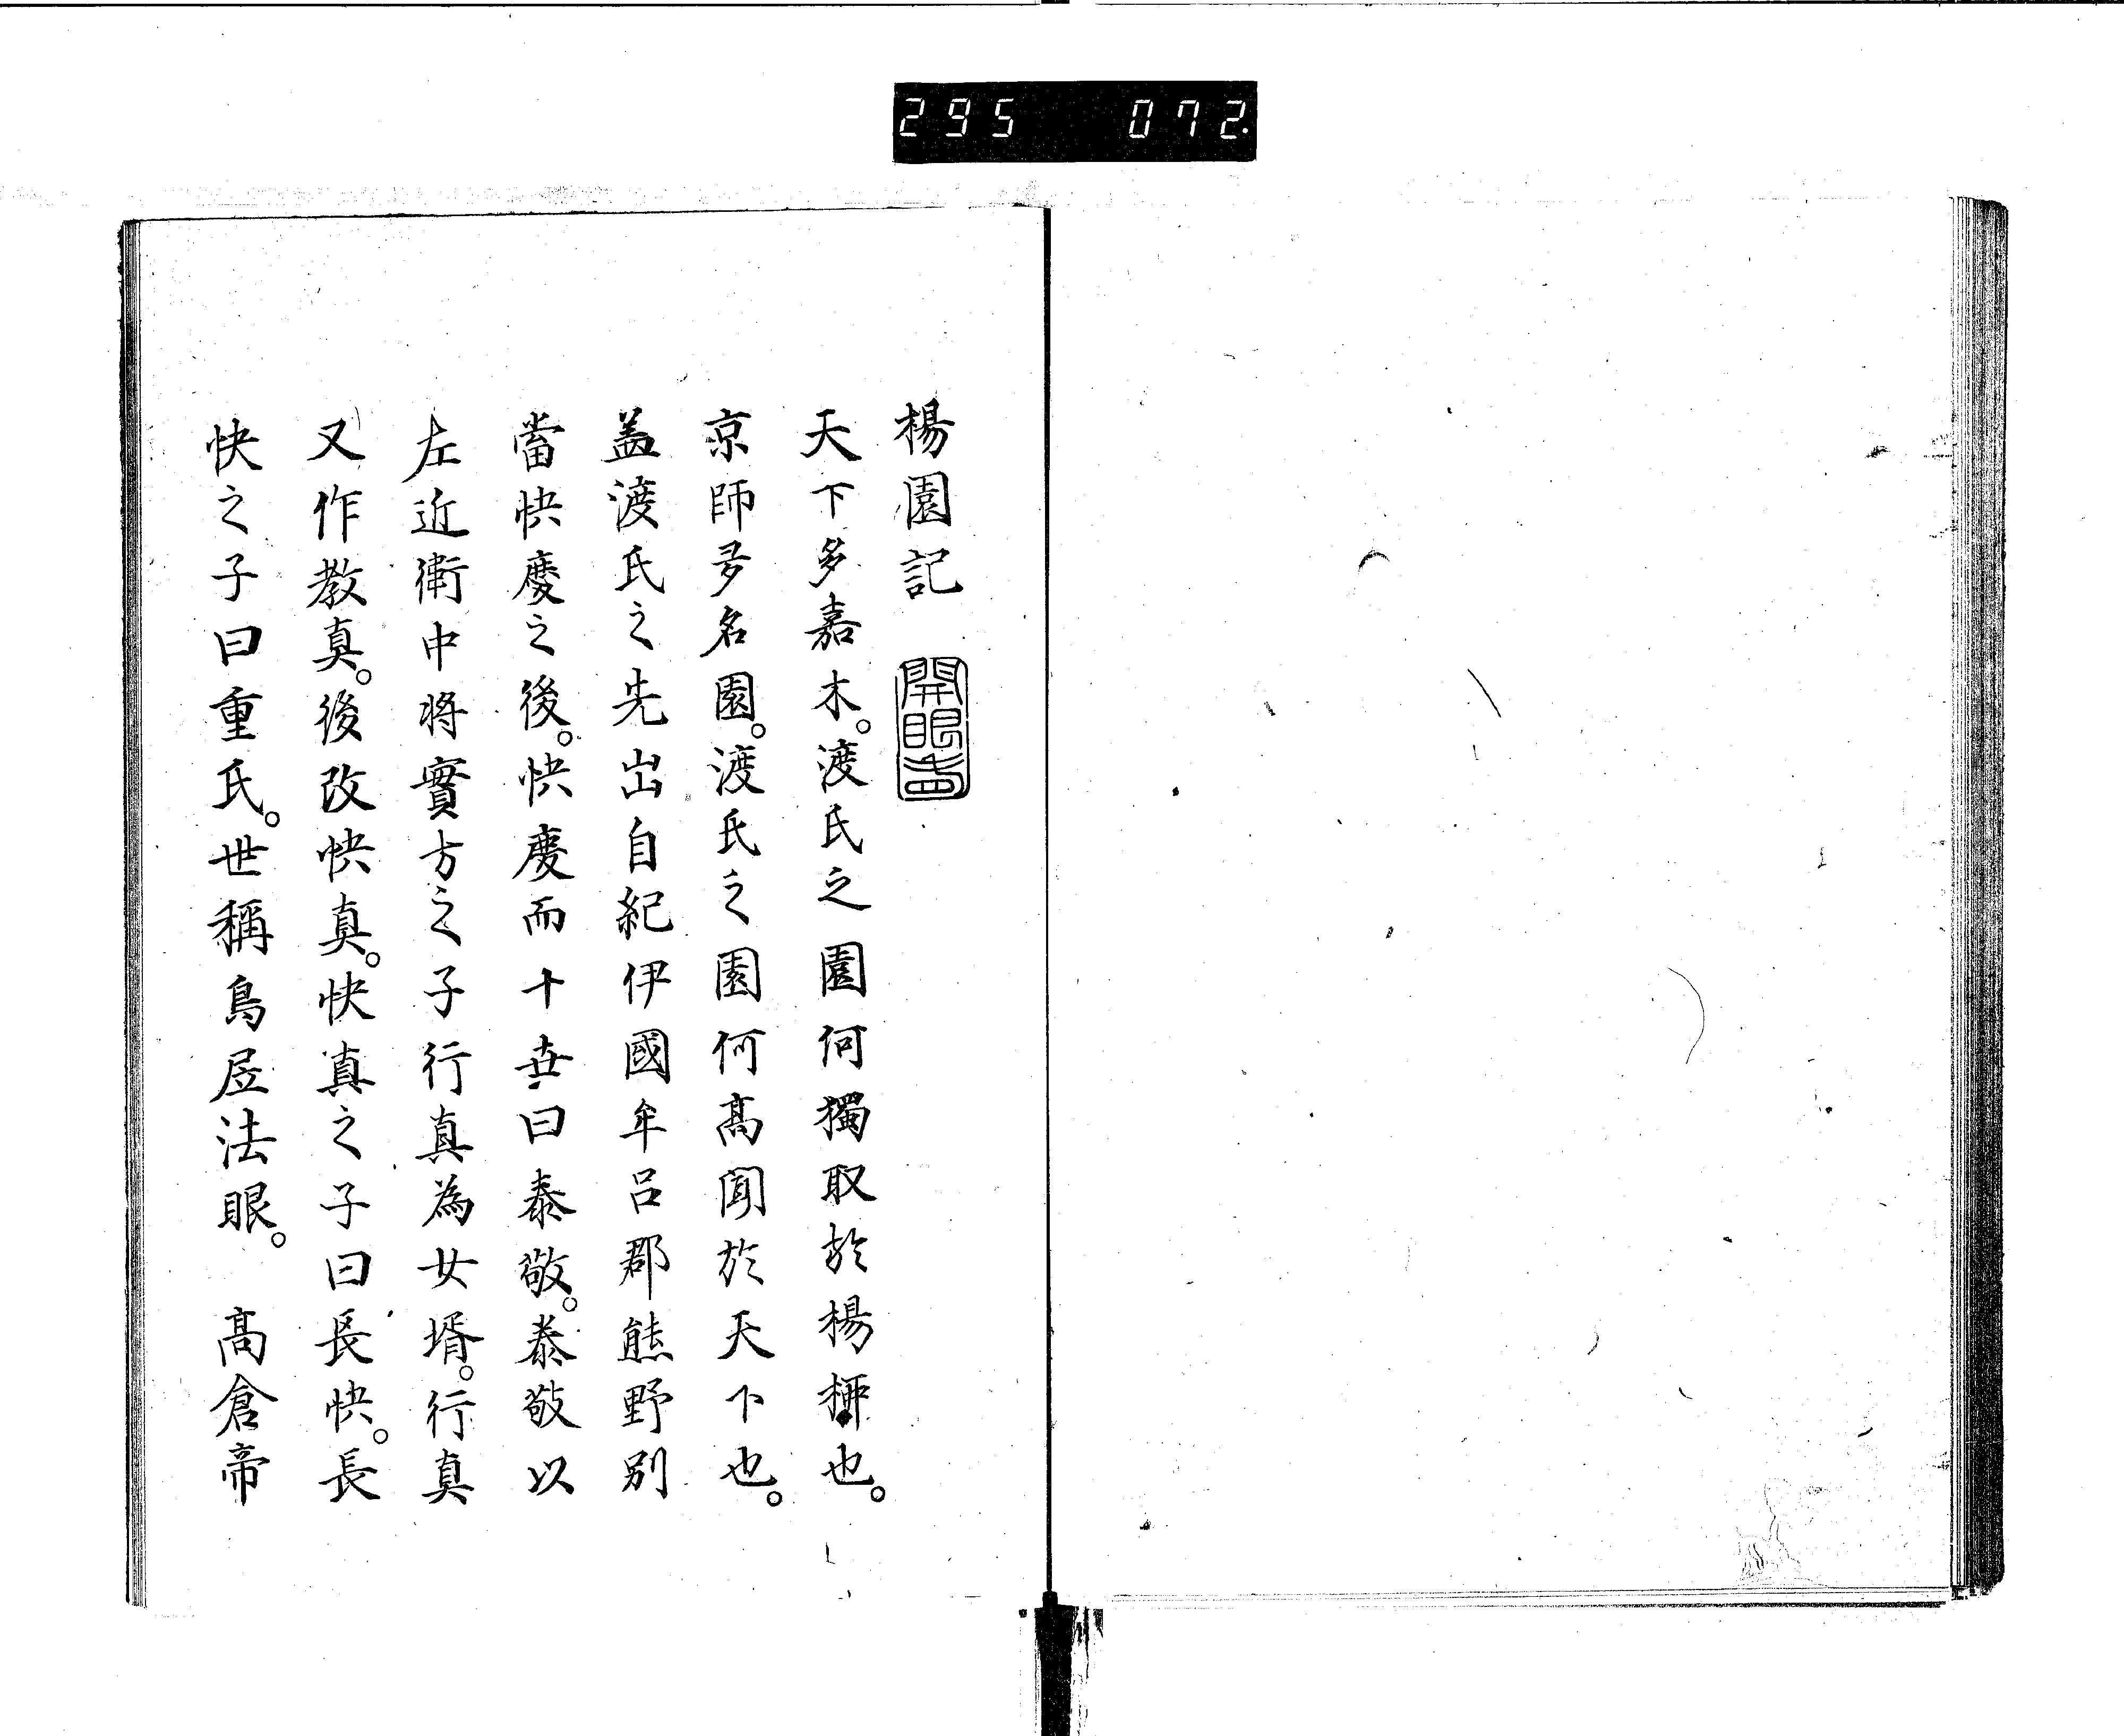 295 072.
楊園記
開眼
天下多嘉木。渡氏之園何獨取於楊柳也。
京師多名園。渡氏之園何高聞於天下也。
盖渡氏之先出自紀伊國牟呂郡熊野別
當快慶之後。快慶而十世曰泰敬。泰敬以
左近衛中将實方之子行真為女壻。行真
又作教真。後改快真。快真之子曰長快。長
快之子曰重氏。世稱鳥居法眼。 高倉帝